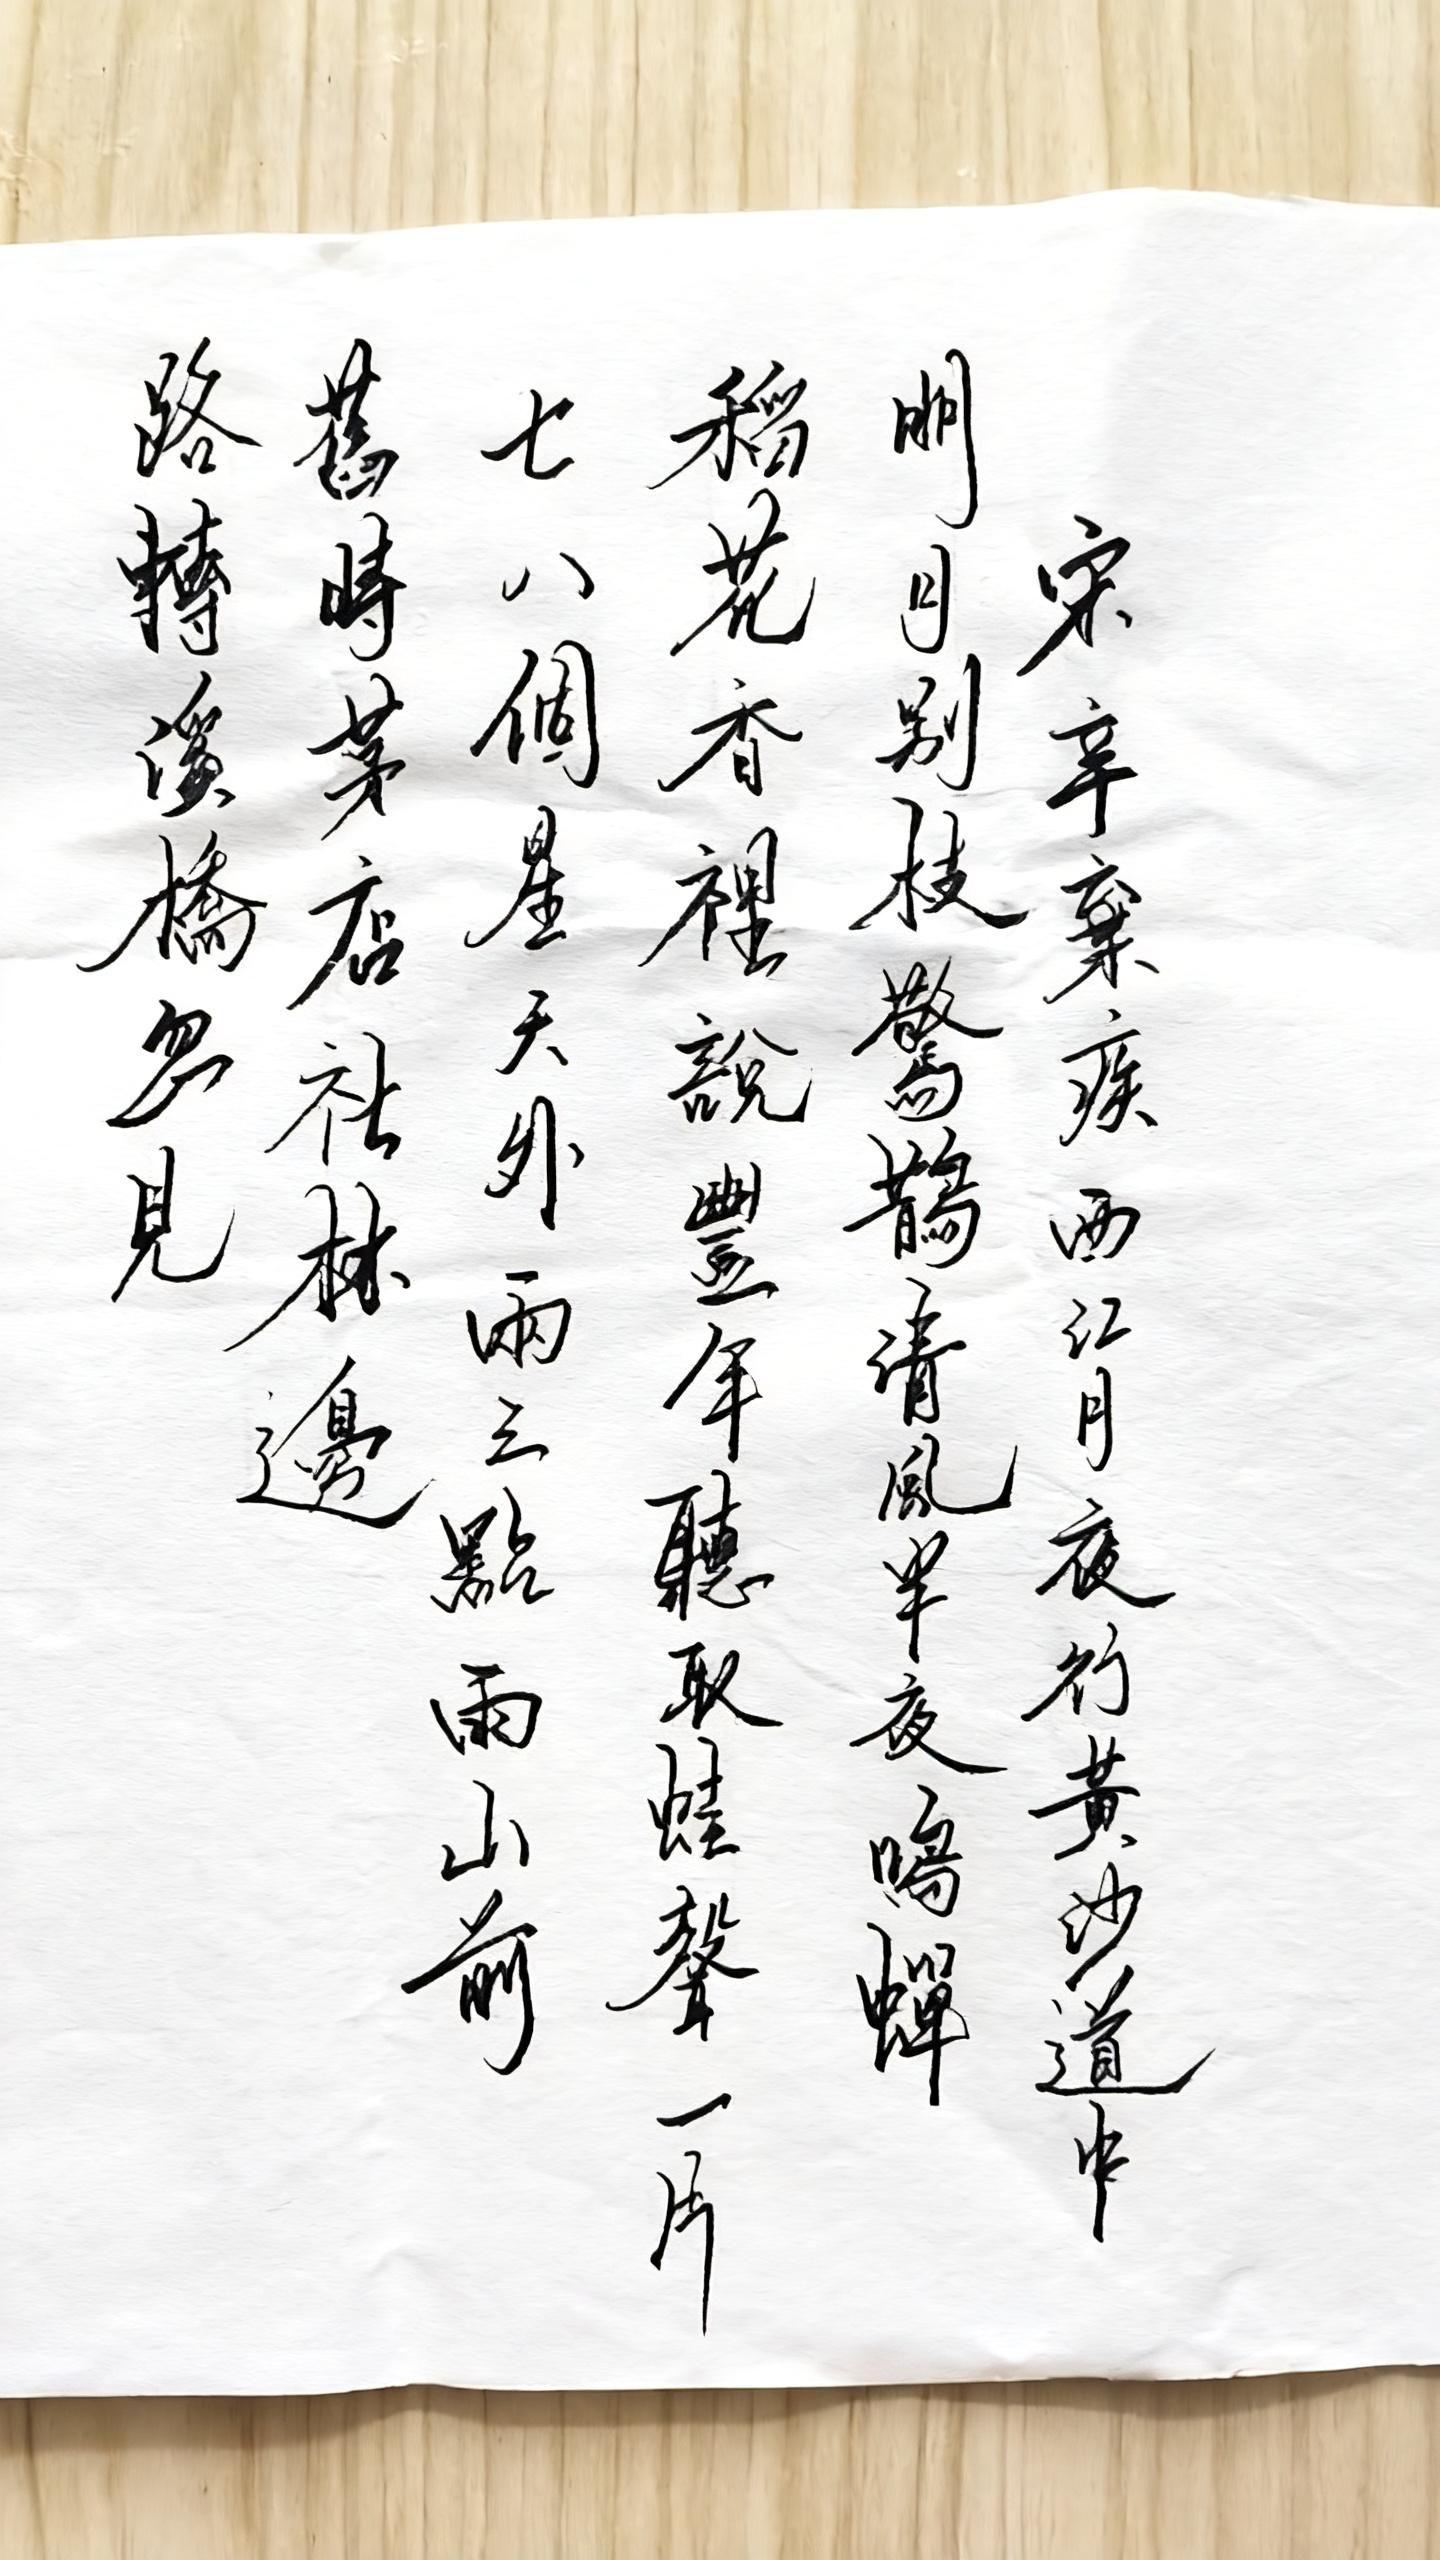 宋辛棄疾西江月夜行黃沙道中
明月别枝驚鵲清風半夜鳴蟬
稻花香裡說豐年聽取蛙聲一片
七八個星天外兩三點雨山前
舊時茅店社林邊
路轉溪橋忽見